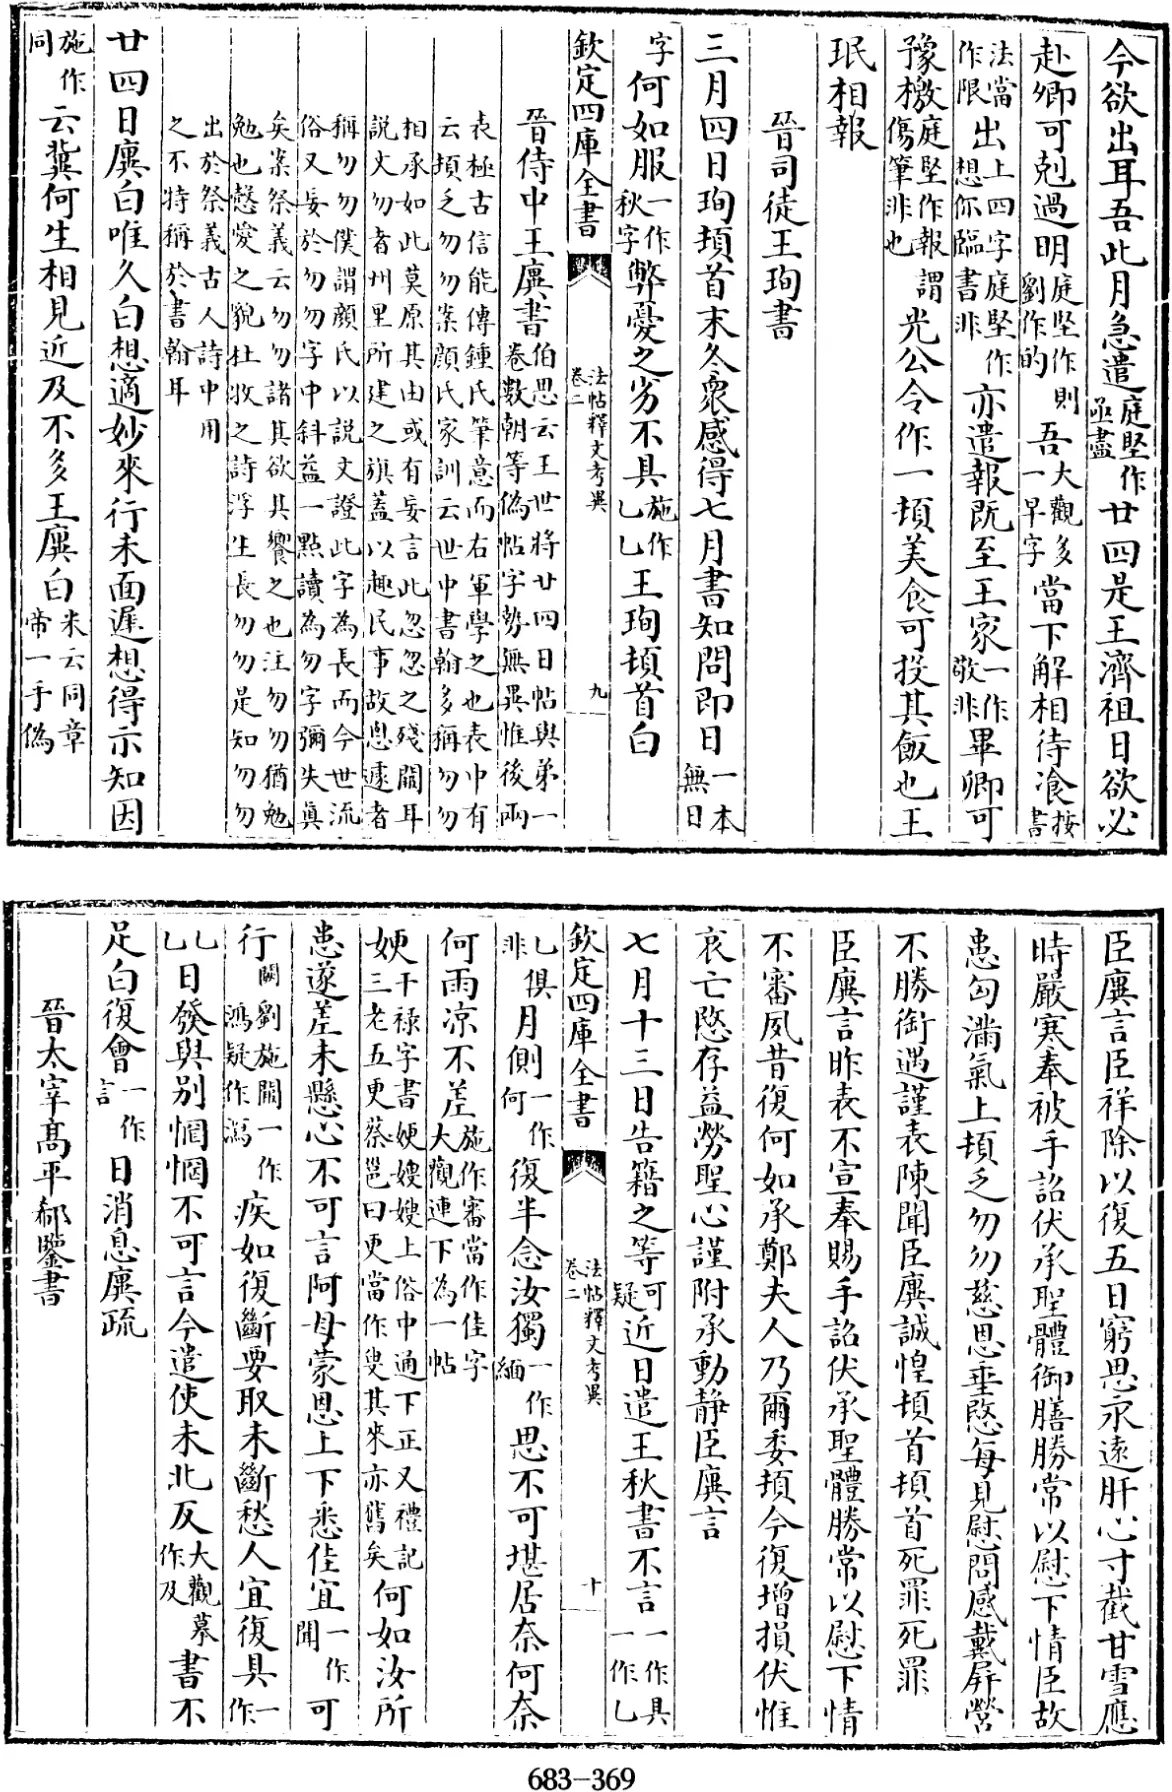 今欲出耳吾此月急遣庭堅作亟盡廿四是王濟祖日欲必
赴卿可剋過明庭堅作則劉作的吾大觀多一早字當下解相待飡按書
法當作限出上四字庭堅作想你臨書非亦遣報既至王家一作敬非畢卿可
豫檄庭堅作報謂傷筆非也光公令作一頓美食可投其飯也王
珉相報
晉司徒王珣書
三月四日珣頓首末冬衆感得七月書知問即日一本無日
字何如服一作秋字弊憂之劣不具施作乚乚王珣頓首白
欽定四庫全書
法帖釋文考異
卷二
九
晉侍中王廙書伯思云王世將廿四日帖與弟一卷數朝等偽帖字勢無異惟後兩
表極古信能傳鍾氏筆意而右軍學之也表中有云頓乏勿勿案顔氏家訓云世中書翰多稱勿勿
相承如此莫原其由或有妄言此忽忽之殘闕耳説文勿者州里所建之旗蓋以趣民事故悤遽者
稱勿勿僕謂顔氏以説文證此字為長而今世流俗又妄於勿勿字中斜益一點讀為勿字彌失真
矣案祭義云勿勿諸其欲其饗之也注勿勿猶勉勉也慤愛之貌杜牧之詩浮生長勿勿是知勿勿
出於祭義古人詩中用之不特稱於書翰耳
廿四日廙白唯久白想適妙來行未面遲想得示知因
施作同云冀何生相見近及不多王廙白米云同章帝一手偽
臣廙言臣祥除以復五日窮思永遠肝心寸截甘雪應
時嚴寒奉被手詔伏承聖體御膳勝常以慰下情臣故
患匈滿氣上頓乏勿勿慈恩垂愍每見慰問感戴屏營
不勝銜遇謹表陳聞臣廙誠惶頓首頓首死罪死罪
臣廙言昨表不宣奉賜手詔伏承聖體勝常以慰下情
不審夙昔復何如承鄭夫人乃爾委頓今復增損伏惟
哀亡愍存益勞聖心謹附承動静臣廙言
七月十三日告籍之等可疑近日遣王秋書不言一作具一作乚
欽定四庫全書
法帖釋文考異
卷二
十
乚俱非月側一作何復半念汝獨一作緬思不可堪居奈何奈
何雨凉不差施作審當作佳字大觀連下為一帖
㛐干禄字書㛐嫂嫂上俗中通下正又禮記三老五更蔡邕曰更當作叟其來亦舊矣何如汝所
患遂差未懸心不可言阿母蒙恩上下悉佳宜一作聞可
行闕劉施闕一作鴻疑作瀉疾如復斷要取未斷愁人宜復具一作
乚乚日發與别悃悃不可言今遣使未北反大觀摹作及書不
足白復會一作言日消息廙疏
晉太宰高平郗鑒書
683-369